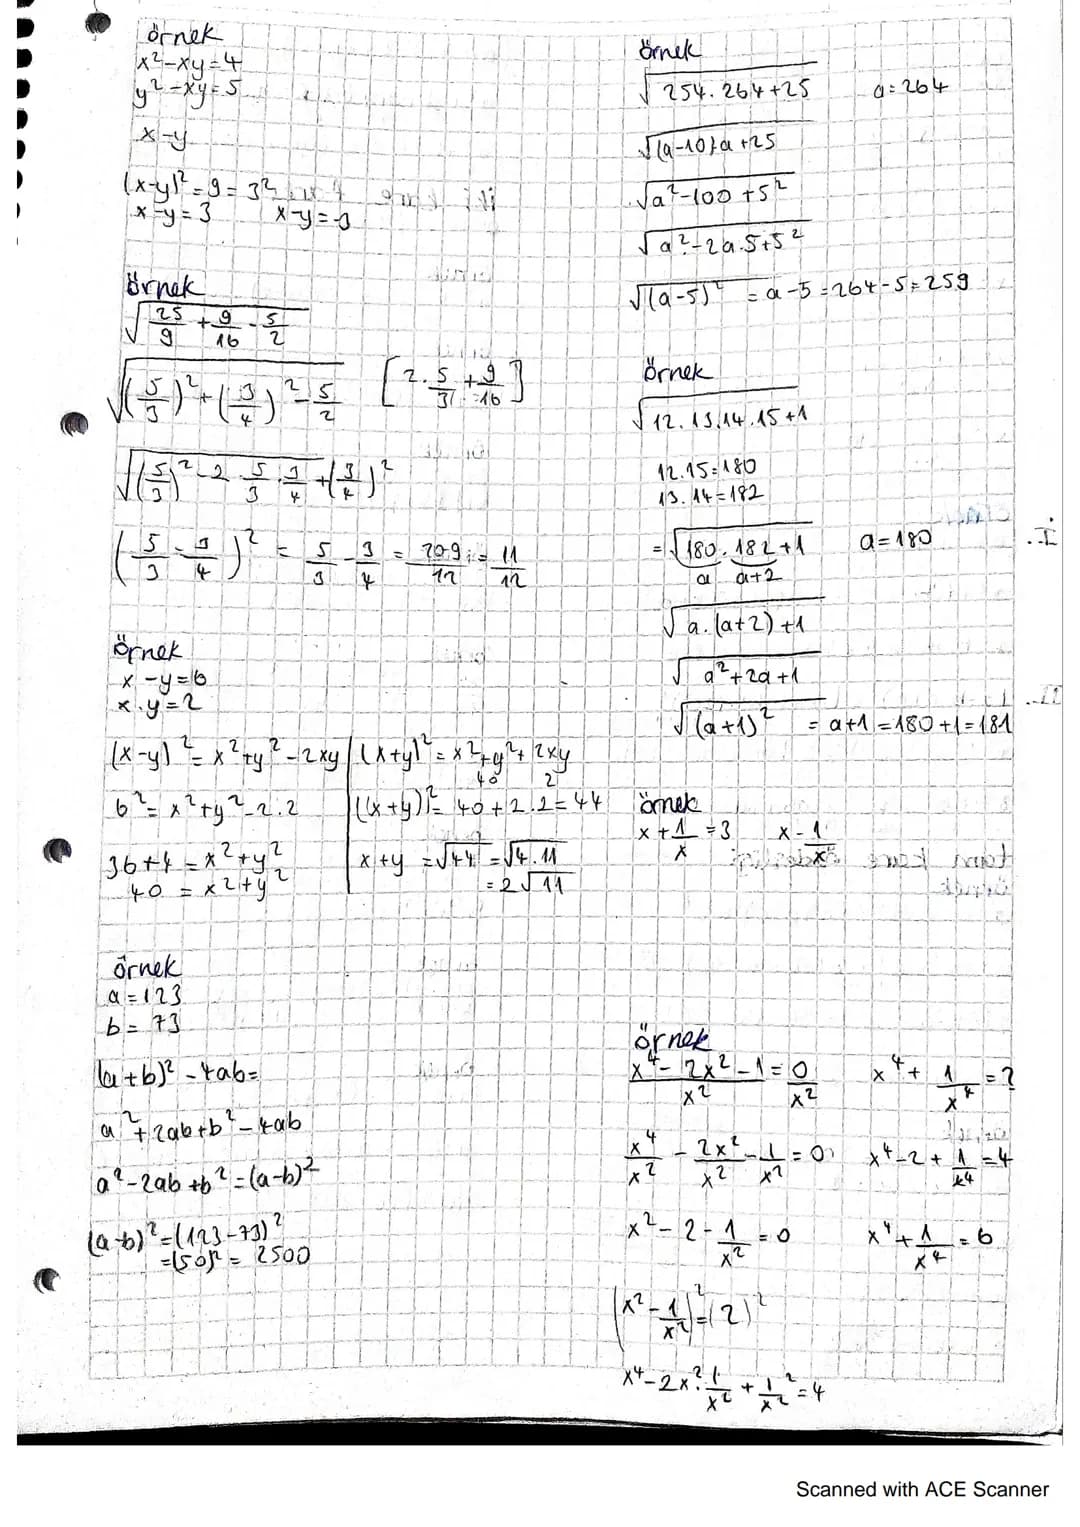 örnek
x²-xy=4
y²-xy=5
x-y
(x-y)²=9=3²
x-y=3 x-y=-3
örnek
√(25/9 + 9/16 - 5/2)
√((5/3)² + (3/4)² - 5/2) [2·5/3 + 9/16]
√((5/3)² - 2·5/3·3/4 + (3/4)²
(5/3 - 3/4)² = 5/3 - 3/4 = 20-9/12 = 11/12
örnek
x-y=6
x.y=2
(x-y)²=x²+y²-2xy | (x+y)²=x²+y²+2xy
40 2
6²=x²+y²-2.2 | ((x+y))²=40+2.2=44
36+4=x²+y² | x+y=√44=√4.11
40=x²+y² | =2√11
örnek
a=123
b=73
(a+b)²-4ab=
a²+2ab+b²-4ab
a²-2ab+b²=(a-b)²
(a-b)²=(123-73)²
=(50)²=2500
örnek
√254.264+25 a=264
√(a-10)a+25
√a²-100+5²
√a²-2a.5+5²
√(a-5)² =a-5=264-5=259
örnek
√12.13.14.15+1
12.15=180
13.14=182
=√180.182+1 a=180
a a+2
√a.(a+2)+1
√a²+2a+1
√(a+1)² =a+1=180+1=181
örnek
x+1/x=3 x-1/x
örnek
x⁴-2x²-1/x²=0/x² x⁴+1/x⁴=?
x⁴/x² - 2x²/x² - 1/x²=0 x⁴-2+1/x⁴=4
x²-2-1/x²=0 x⁴+1/x⁴=6
(x²-1/x²)²=(2)²
x⁴-2x².1/x²+1/x²²=4
Scanned with ACE Scanner